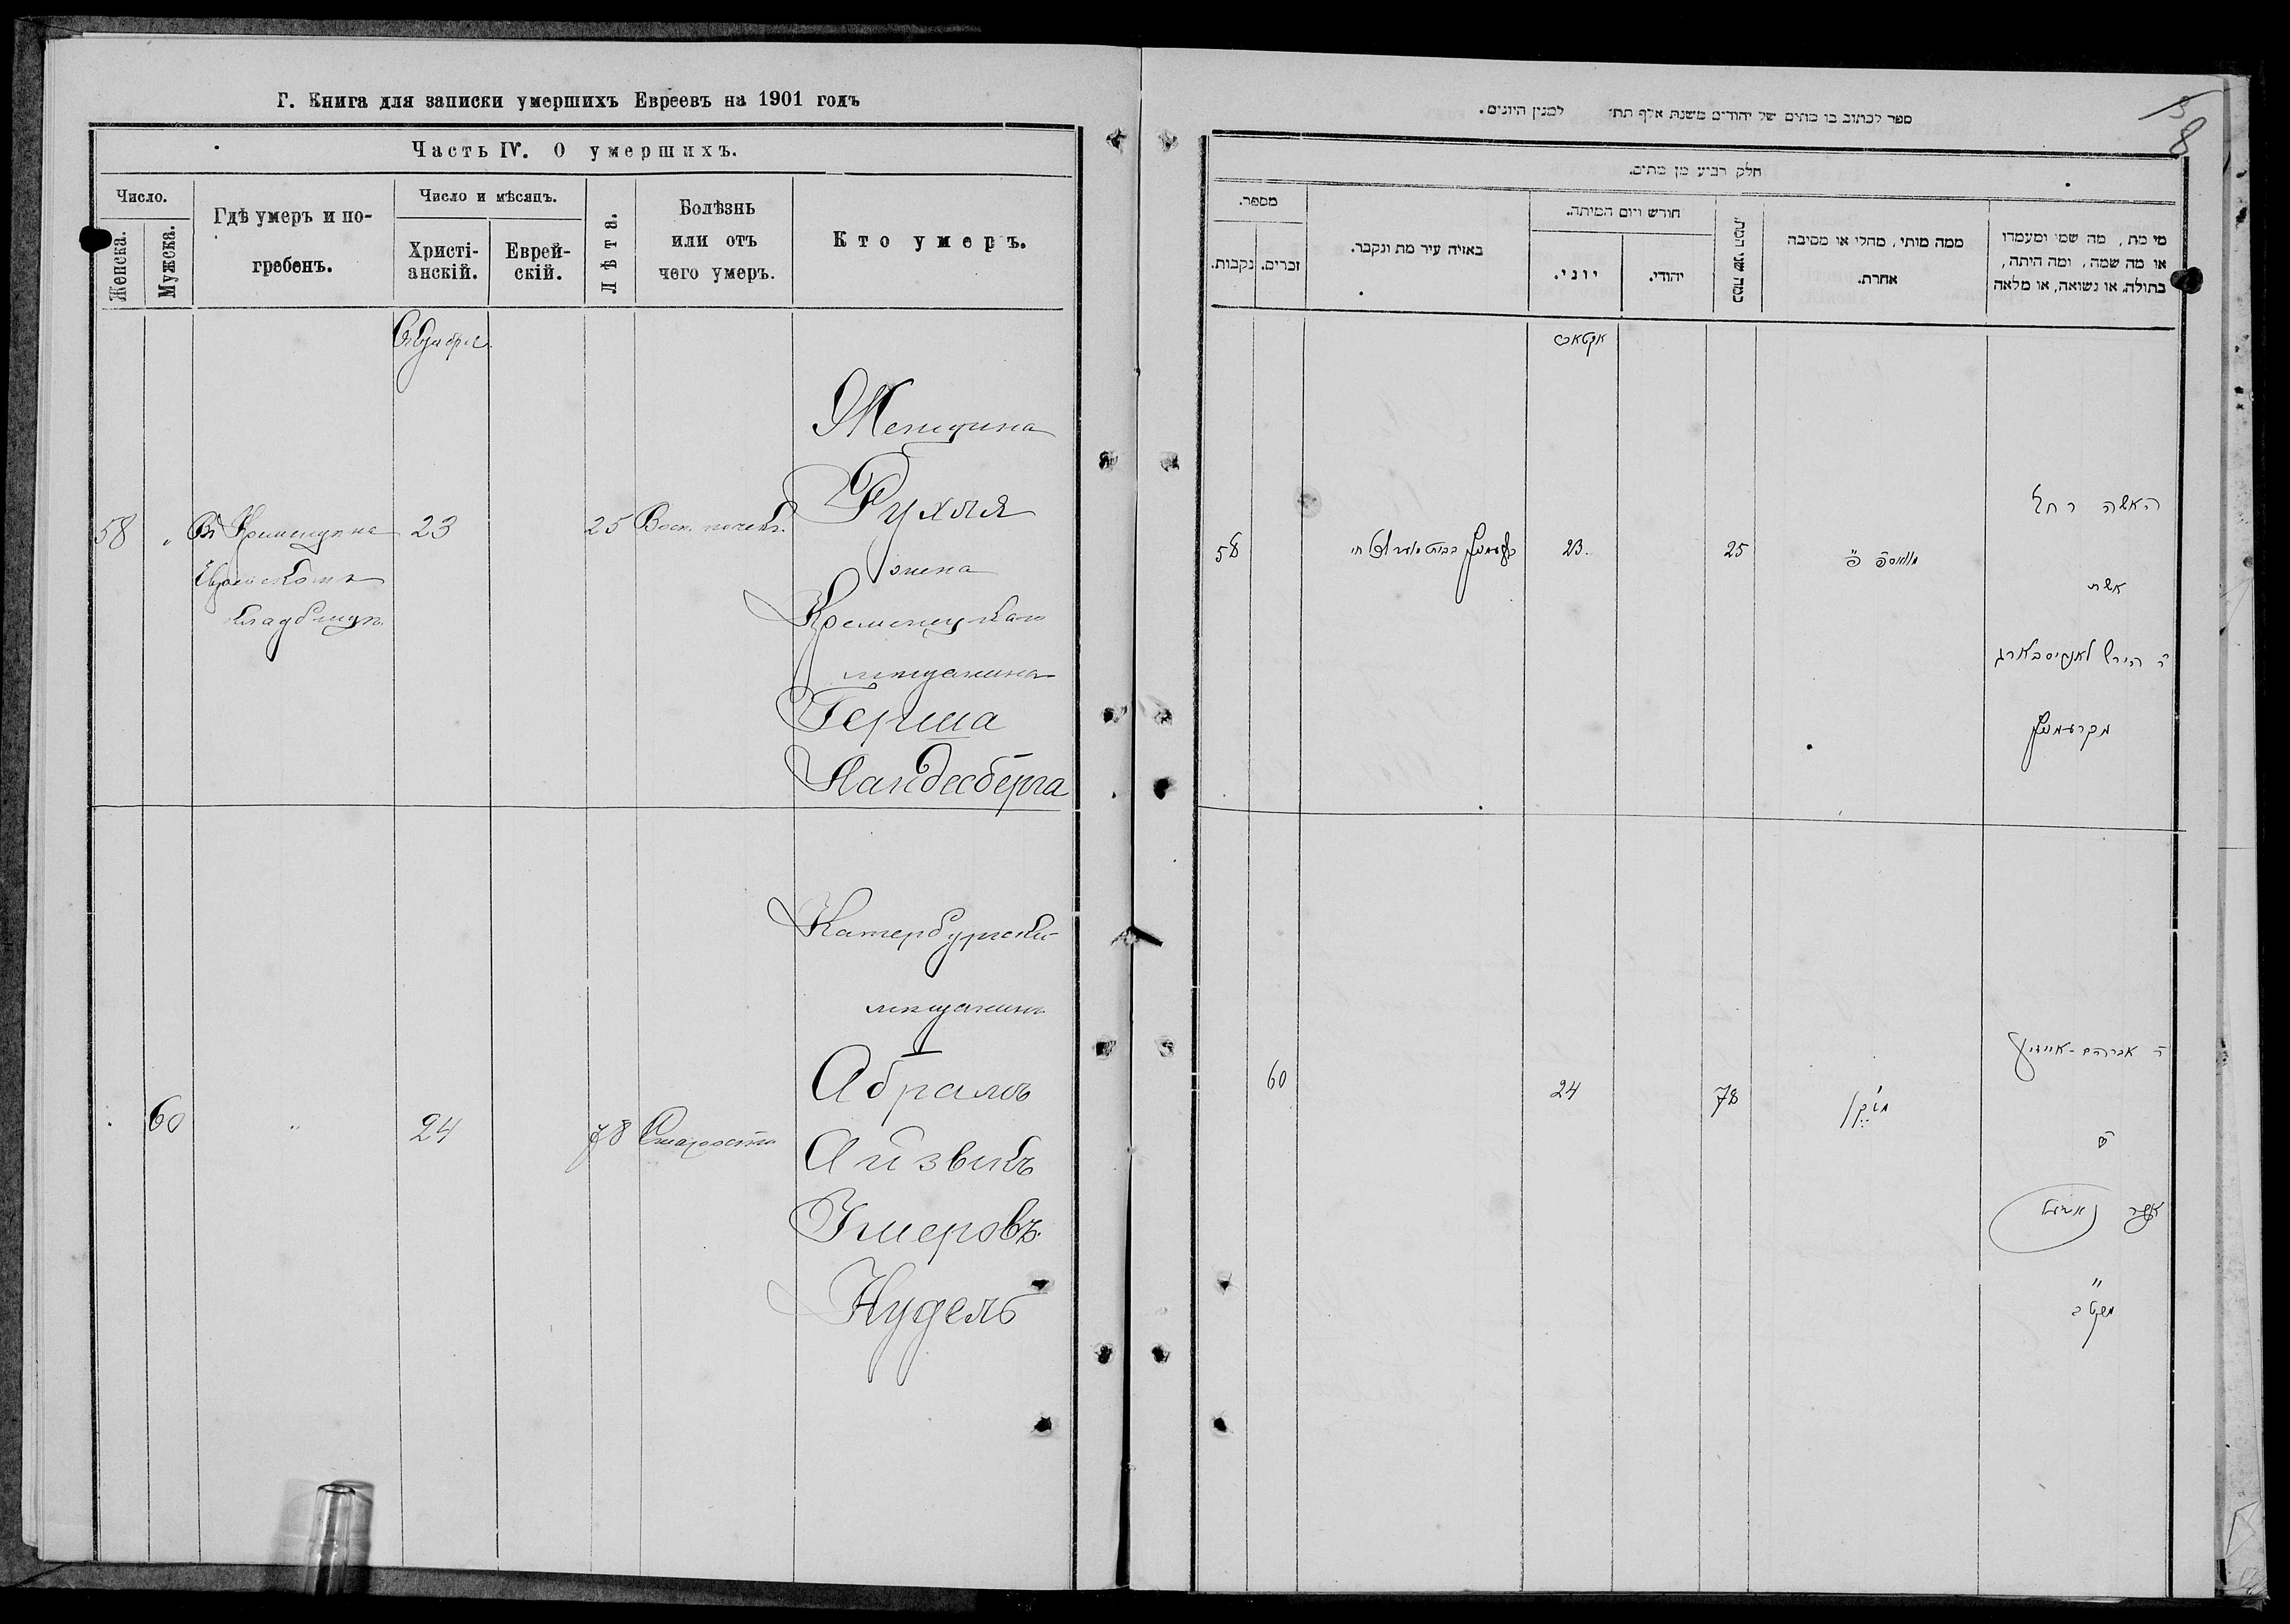 Г. Книга для записки умершихъ Евреевъ на 1901 годъ
Часть IV. О умершихъ.
Число.
Женска.
Мужска.
Гдѣ умеръ и по-
гребенъ.
Число и мѣсяцъ.
Христі-
анскій.
Еврей-
скій.
Лѣта.
Болѣзнь
или отъ
чего умеръ.
Кто умеръ.
Октября
58
"
Въ Кременцѣ на
Еврейскомъ
кладбищѣ
23
25
Восп. почекъ
Женщина
Рухля
жена
Кременецкаго
мѣщанина
Герша
Ландесберга
60
"
24
78
Старости
Катербургскій
мѣщанинъ
Абрамъ
Айзикъ
Ушеровъ
Нудель
ספר לכתוב בו מתים של יהודים משנת אלף תתי למנין היונים.
8
חלק רביע מן מתים.
מספר.
נקבות.
זכרים.
באיזה עיר מת ונקבר.
חורש ויום המיתה.
יוני.
יהודי.
כמה שני המת.
ממה מותי, מחלי או מסיבה
אחרת.
מי מת, מה שמי ומעמדו
או מה שמה, ומה היתה,
בתולה, או נשואה, או מלאה
58
23.
25
האשה רחל
אשת
ר הירש לאנדיסבארג
מקרעמניץ
60
24
78
מזקן
ר אברהם-אייזיק
ב
אשר